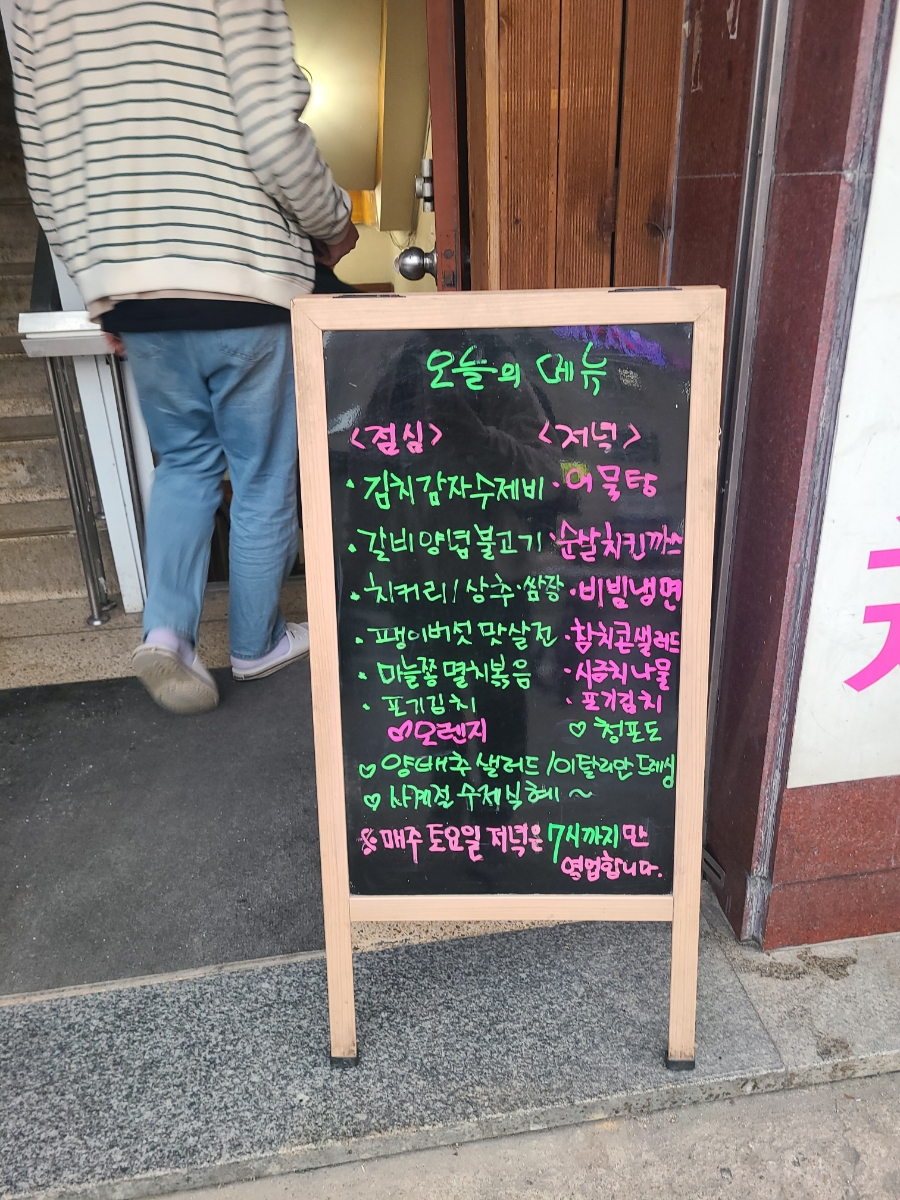 오늘의 메뉴
<점심> <저녁>
· 김치감자수제비 · 어묵탕
· 갈비양념불고기 · 순살치킨까스
· 치커리/상추·쌈장 · 비빔냉면
· 팽이버섯맛살전 · 참치콘샐러드
· 마늘쫑멸치볶음 · 시금치나물
· 포기김치 · 포기김치
♡오렌지 ♡ 청포도
♡ 양배추샐러드/이탈리안드레싱
♡ 사계절 수제식혜~
※매주 토요일 저녁은 7시까지만
영업합니다.